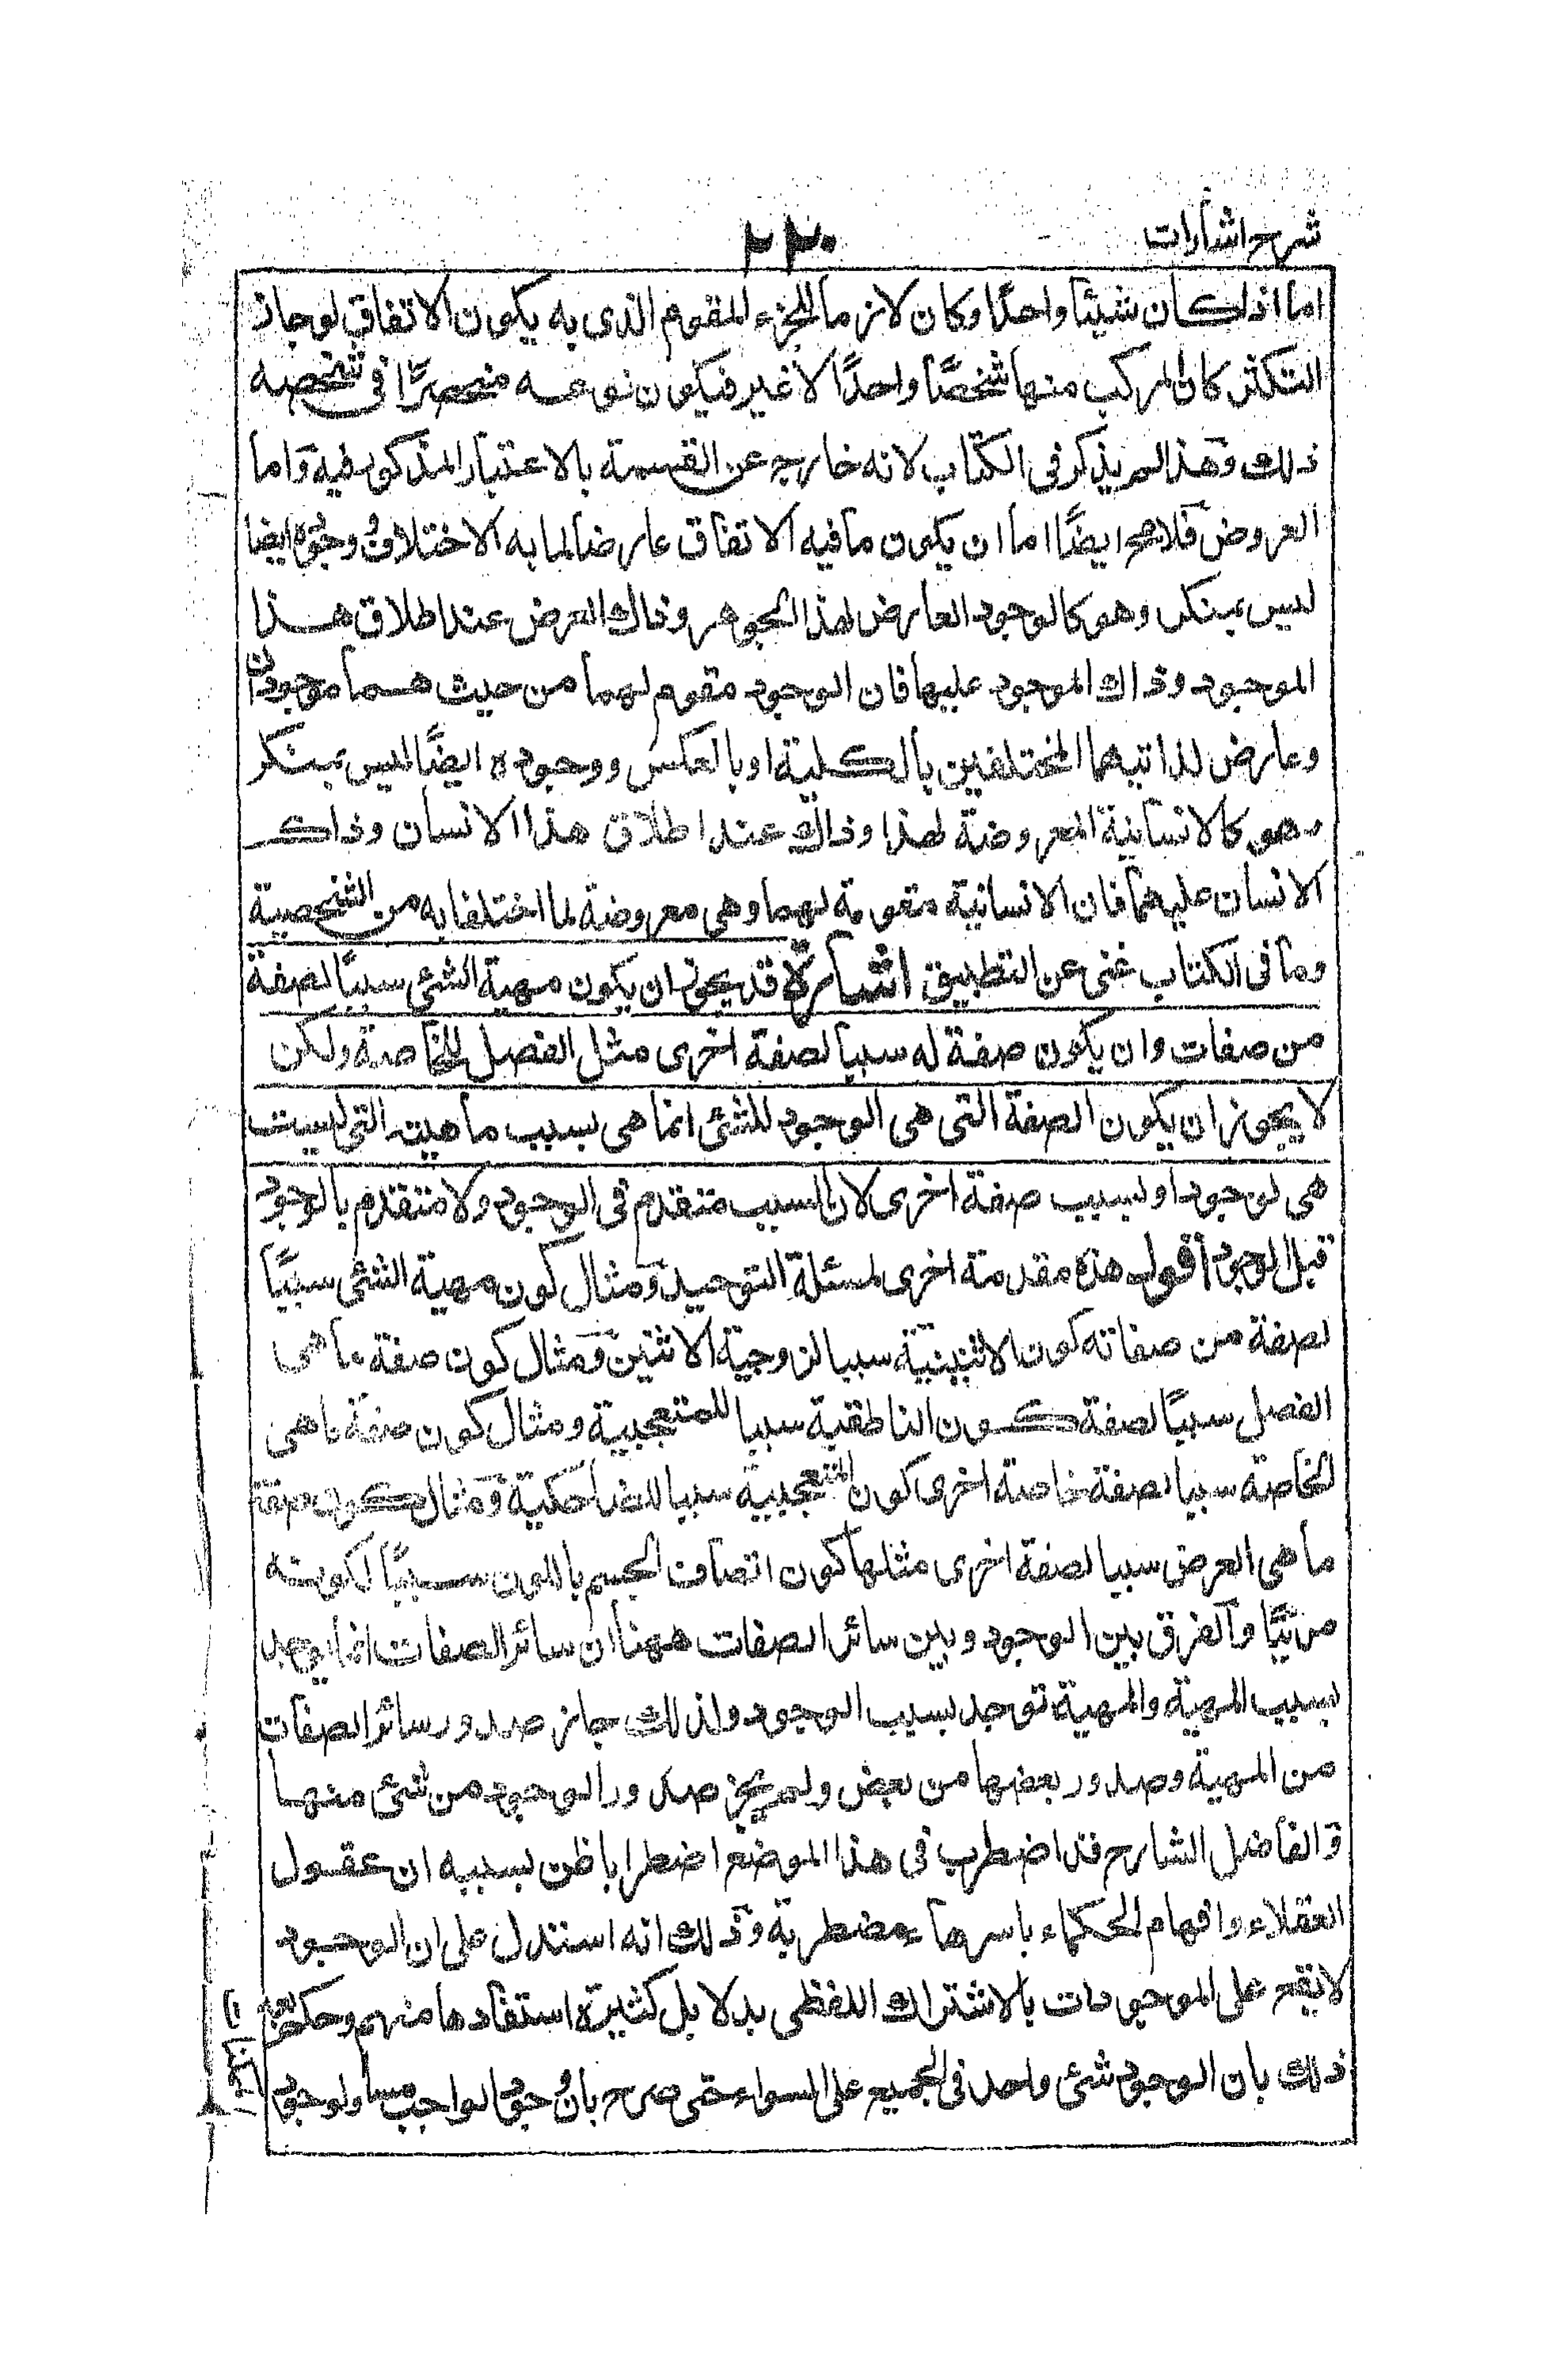 شرح اشارات
٢٢٠
اما اذا كان شيئا واحدًا وكان لازما للجزء المقوم الذى به يكون الاتفاق لوجاز
التكثر كان المركب منها شخصًا واحدًا لا غير فيكون نوعه منحصرًا فى شخصه
ذلك وهذا لم يذكر فى الكتاب لانه خارج عن القسمة بالاعتبار المذكور فيه واما
العروض فلا يخ ايضًا اما ان يكون ما فيه الاتفاق عارضا لما به الاختلاف ووجوده ايضا
ليس بمنكر وهو كالوجود العارض لهذا الجوهر وذاك العرض عند اطلاق هذا
الموجود وذاك الموجود عليها فان الوجود مقوم لهما من حيث هما موجودان
وعارض لذاتيهما المختلفين بالكلية او بالعكس ووجوده ايضًا ليس بمنكر
وهو كالانسانية المعروضة لهذا وذاك عند اطلاق هذا الانسان وذاك
الانسان عليهما فان الانسانية مقومة لهما وهى معروضة لما اختلفا به من الشخصية
وما فى الكتاب غنى عن التطبيق اشارة قد يجوز ان يكون مهية الشئ سببًا لصفة
من صفات وان يكون صفة له سببا لصفة اخرى مثل الفصل للخاصة ولكن
لا يجوز ان يكون الصفة التى هى الوجود للشئ انما هى بسبب ماهيته التى ليست
هى لوجود او لسبب صفة اخرى لان السبب متقدم فى الوجود ولا متقدم بالوجود
قبل الوجود أقول هذه مقدمة اخرى لمسئلة التوحيد ومثال كون مهية الشئ سببًا
لصفة من صفاته كون الاثنينية سببا لزوجية الاثنين ومثال كون صفة ما هى
الفصل سببًا لصفة كون الناطقية سببا للمتعجبية ومثال كون صفة ما هى
الخاصة سببا لصفة خاصة اخرى كون المتعجبية سببا للضاحكية ومثال كون صفة
ما هى العرض سببا لصفة اخرى مثلها كون اتصاف الجسم باللون سببًا لكونه
مرئيًّا والفرق بين الوجود وبين سائر الصفات ههنا ان سائر الصفات انما يوجد
بسبب المهية والمهية توجد بسبب الوجود ولذلك جاز صدور سائر الصفات
من المهية وصدور بعضها من بعض ولم يجز صدور الوجود من شئ منها
والفاضل الشارح قد اضطرب فى هذا الموضع اضطرابا ظن بسببه ان عقول
العقلاء وافهام الحكماء باسرها مضطربة وذلك انه استدل على ان الوجود
لا يقع على الموجودات بالاشتراك اللفظى بدلايل كثيرة استفادها منهم وحكم بعد
ذلك بان الوجود شئ واحد فى الجميع على السواء حتى صرح بان وجود الواجب مساو لوجود